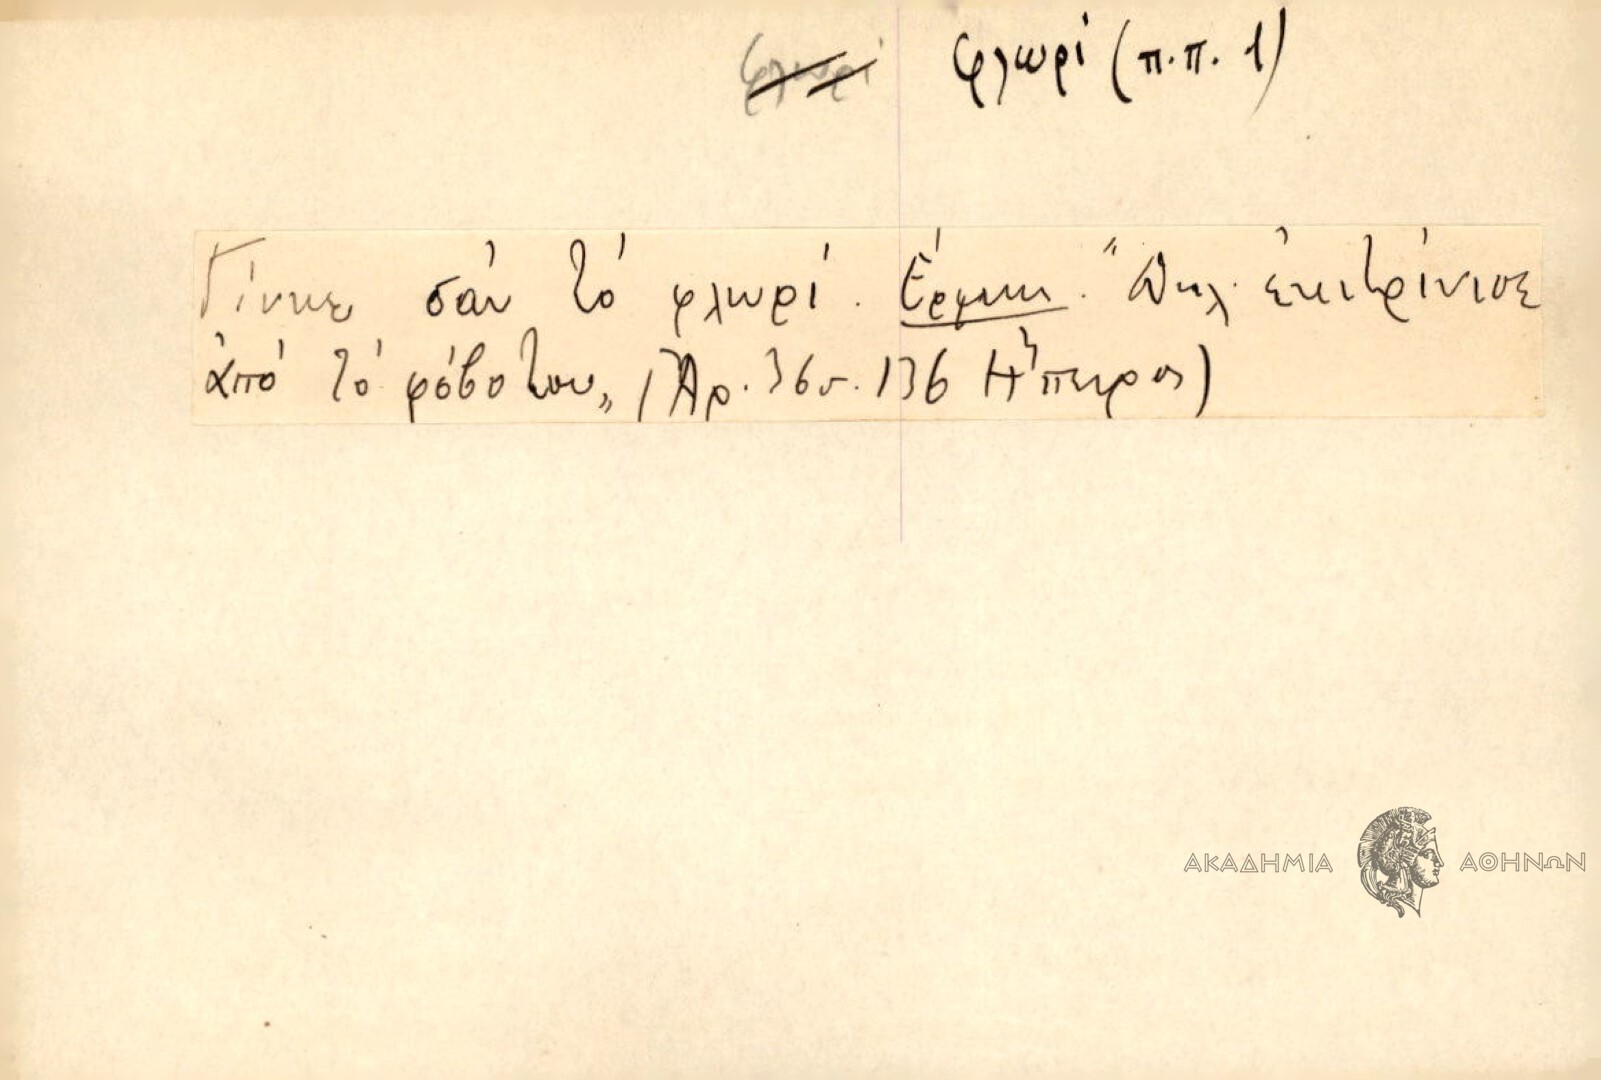 φλωρί φλωρί (π.π. 1)
Γίνηκε σάν τό φλωρί. Ἑρμην. "Δηλ. ἐκιτρίνισε
ἀπό τό φόβο του„ (Ἀρ. 36 σ. 136 Ἤπειρος)
ΑΚΑΔΗΜΙΑ ΑΘΗΝΩΝ